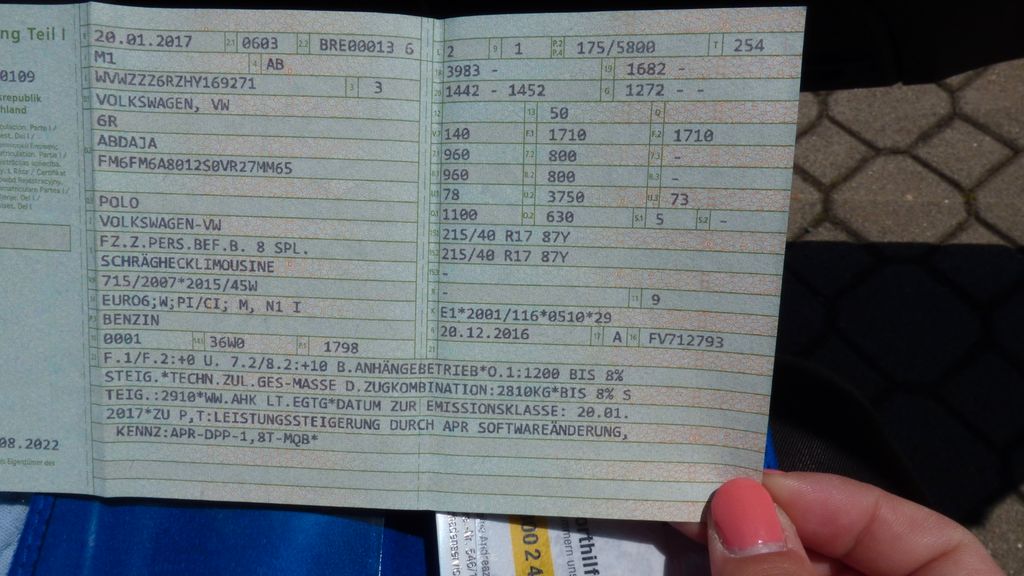 ng Teil I
0109
srepublik
hland
08.2022
20.01.2017 2.1 0603 2.2 BRE00013 6
M1 4 AB
WVWZZZ6RZHY169271 3 3
VOLKSWAGEN, VW
6R
ABDAJA
FM6FM6A8012S0VR27MM65
POLO
VOLKSWAGEN-VW
FZ.Z.PERS.BEF.B. 8 SPL.
SCHRÄGHECKLIMOUSINE
715/2007*2015/45W
EURO6;W;PI/CI; M, N1 I
BENZIN
0001 14.1 36W0 P.1 1798
L 2 9 1 P.2 P.4 175/5800 T 254
18 3983 - 19 1682 -
20 1442 - 1452 G 1272 - -
12 13 50 Q
V.7 140 F.1 1710 F.2 1710
7.1 960 7.2 800 7.3 -
8.1 960 8.2 800 8.3 -
U.1 78 U.2 3750 U.3 73
O.1 1100 O.2 630 S.1 5 S.2 -
215/40 R17 87Y
215/40 R17 87Y
-
- 11 9
K E1*2001/116*0510*29
6 20.12.2016 17 A 16 FV712793
F.1/F.2:+0 U. 7.2/8.2:+10 B.ANHÄNGEBETRIEB*O.1:1200 BIS 8%
STEIG.*TECHN.ZUL.GES-MASSE D.ZUGKOMBINATION:2810KG*BIS 8% S
TEIG.:2910*WW.AHK LT.EGTG*DATUM ZUR EMISSIONSKLASSE: 20.01.
2017*ZU P,T:LEISTUNGSSTEIGERUNG DURCH APR SOFTWAREÄNDERUNG,
KENNZ:APR-DPP-1,8T-MQB*
00 2 4
orthilf
mern uns